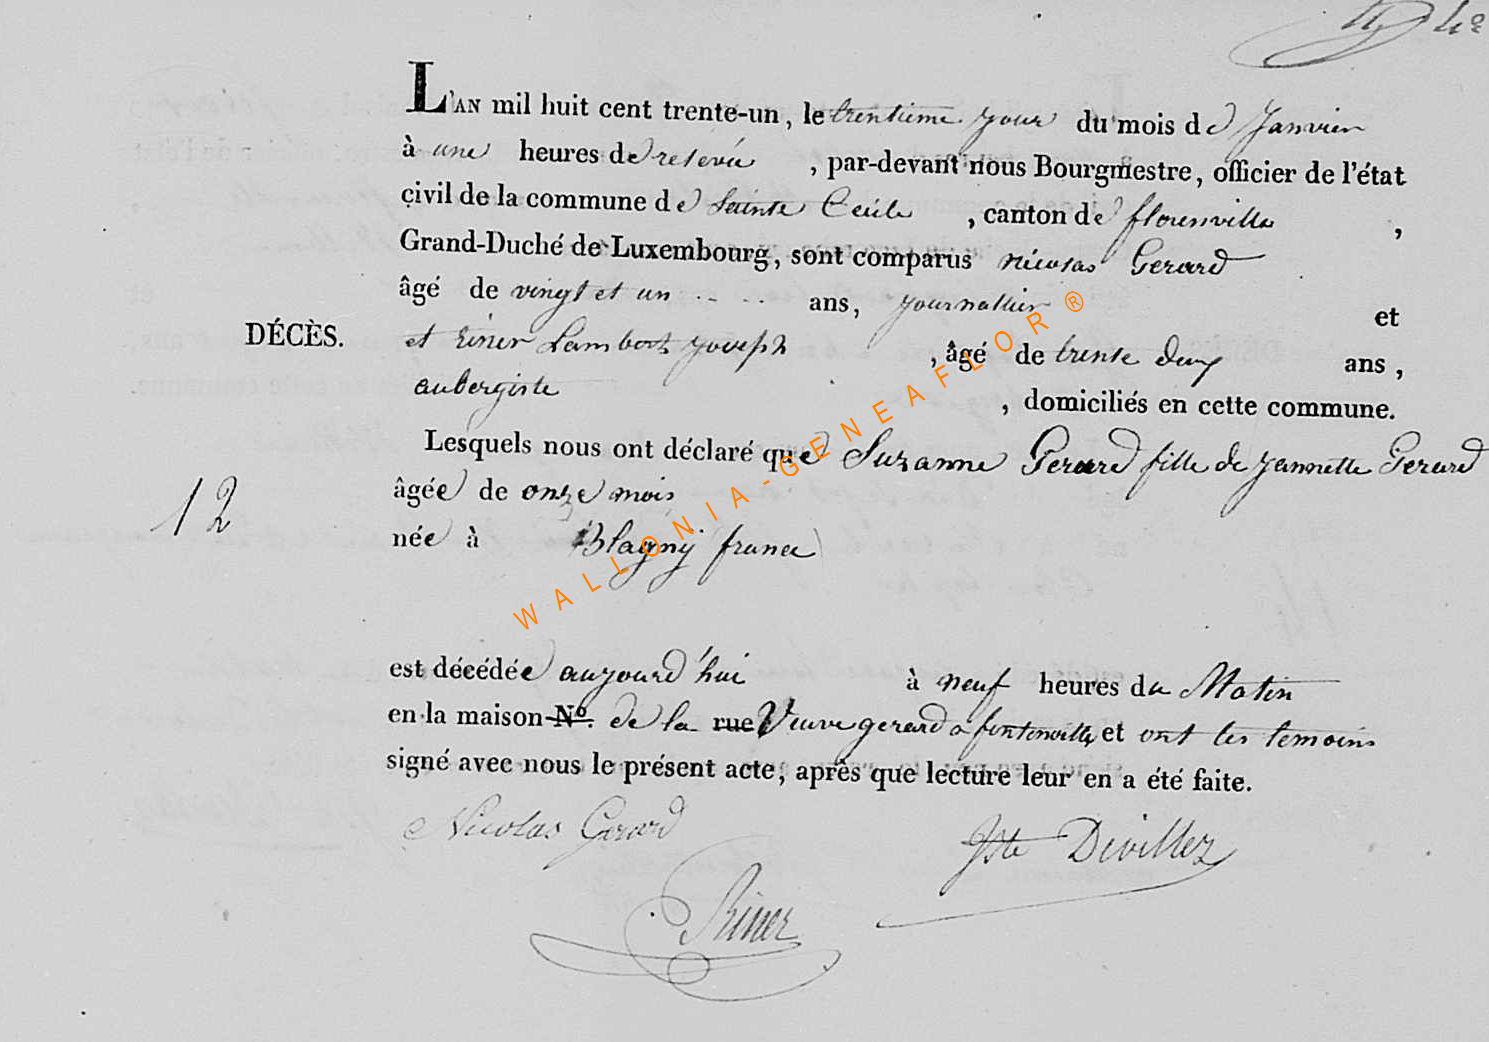 4e
L'AN mil huit cent trente-un, le trentieme jour du mois de Janvier
à une heures de relevée, par-devant nous Bourgmestre, officier de l'état
civil de la commune de Sainte Cecile, canton de florenville,
Grand-Duché de Luxembourg, sont comparus nicolas Gerard
âgé de vingt et un ans, journallier et
DÉCÈS.
et Riner Lambert joseph, âgé de trente deux ans,
aubergiste, domiciliés en cette commune.
Lesquels nous ont déclaré que Suzanne Gerard fille de jannette Gerard
12
âgée de onze mois
née à Blagny france
WALLONIA-GENEAFLOR®
est décédée aujourd'hui à neuf heures du Matin
en la maison N°. de la rue Veuve gerard a fontenville et ont les temoins
signé avec nous le présent acte, après que lecture leur en a été faite.
Nicolas Gerard
Jte Devillez
Riner